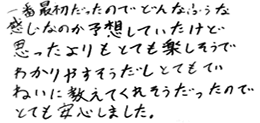 一番最初だったのでどんなふうな
感じなのか予想していたけど
思ったよりもとても楽しそうで
わかりやすそうだしとてもてい
ねいに教えてくれそうだったので
とても安心しました。